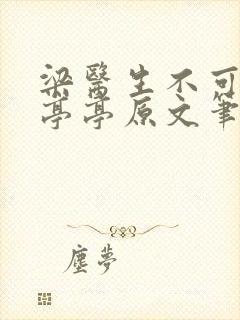 梁醫生不可
亭亭原文筆
塵夢